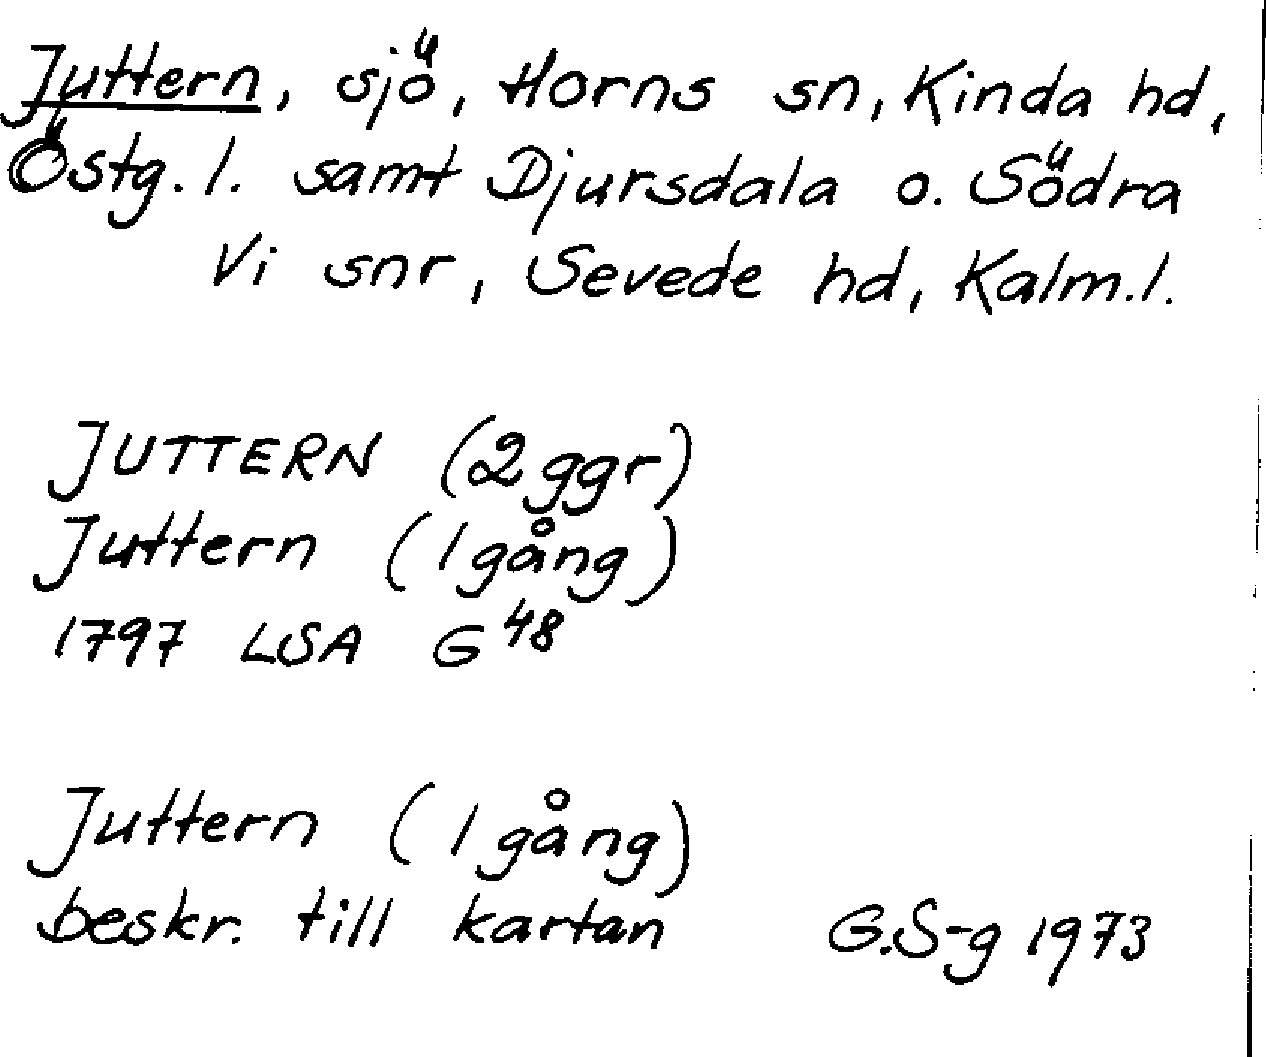 Juttern, sjö, Horns sn, Kinda hd,
Östg. l. samt Djursdala o. Södra
Vi snr, Sevede hd, Kalm.l.
JUTTERN (2 ggr)
Juttern (1 gång)
1797 LSA G 48
Juttern (1 gång)
beskr. till kartan G.S-g 1973